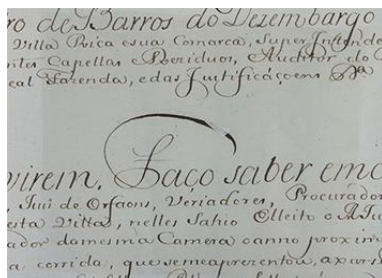 ro de Barros do Dezembargo
Villa Rica esua Comarca, Super Intende
ntes Capellas e Reziduos, Auditor do
eal Fazenda, edas Justificáçoens
virem, Faço saber emc
, Juiz de Orfaons, Veriadores, Procurador
esta Villa, nelles Sahio Elleito o
ador damesma Camera o anno proxim
a corrida, que me aprezentou, a